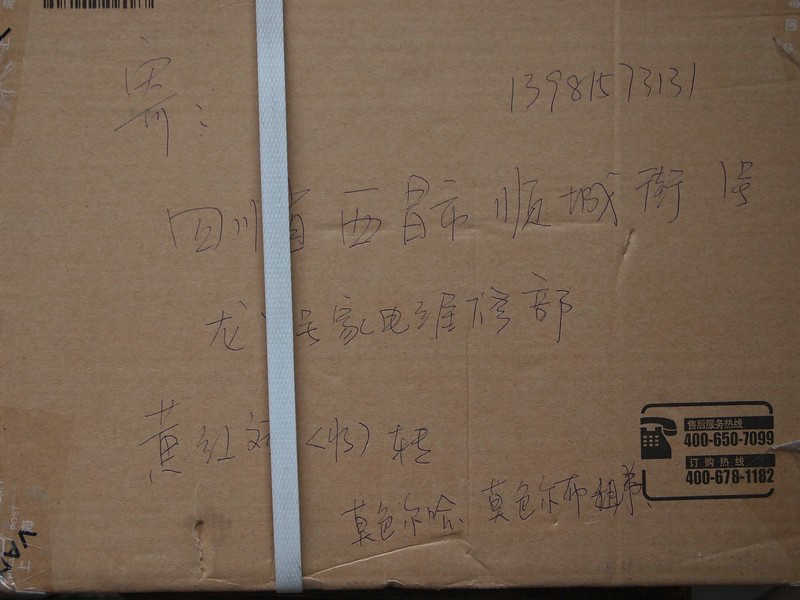 寄:
13981573131
四川省西昌市顺城街1号
龙 号家电维修部
黄红 (收)转
莫色尔哈、莫色尔布姐弟
售后服务热线
400-650-7099
订购热线
400-678-1182